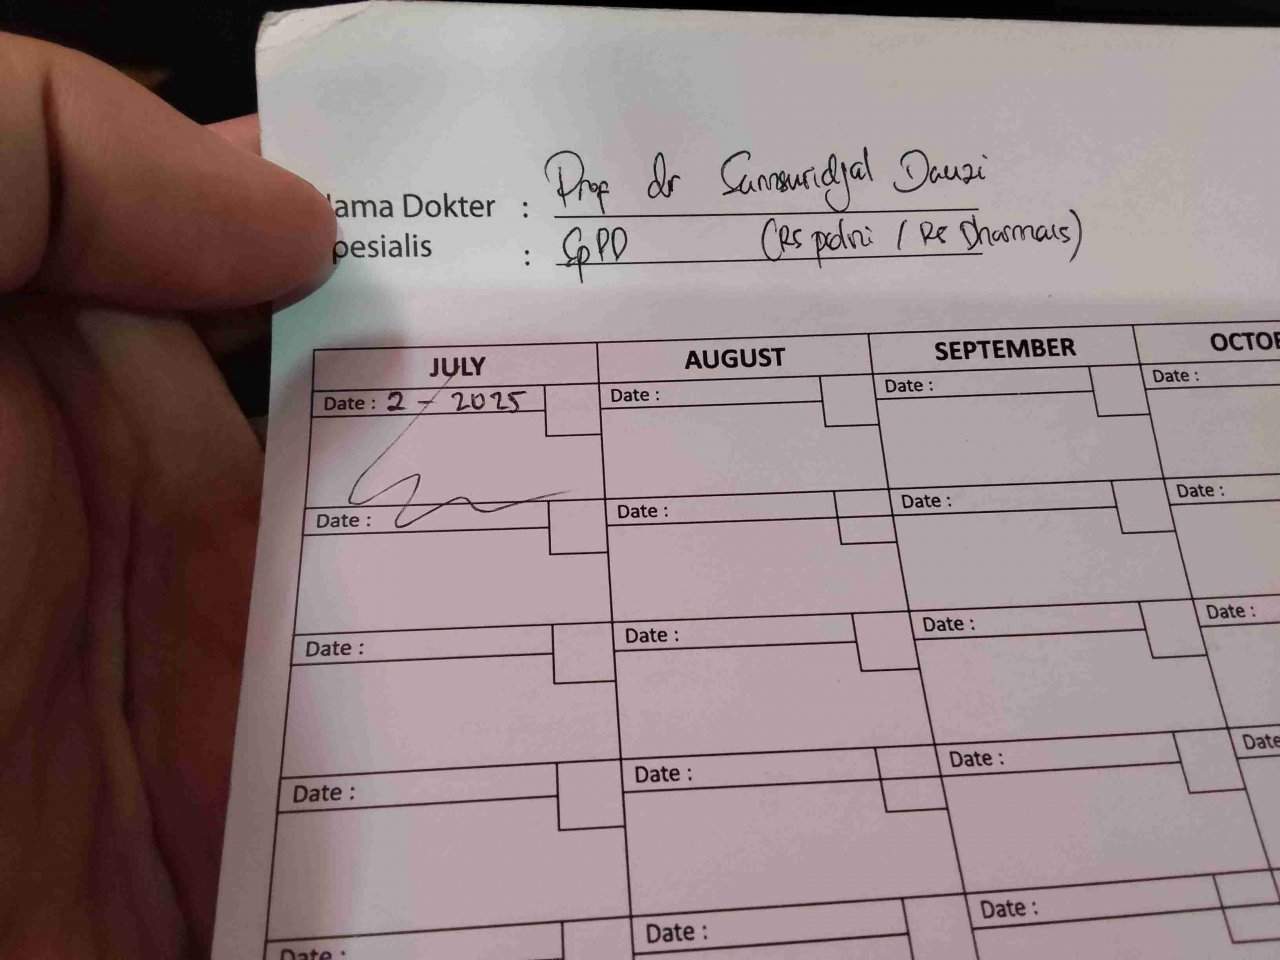 ama Dokter : Prof dr Samsuridjal Dauzi
pesialis : SpPD (RS polri / RS Dharmais)
JULY AUGUST SEPTEMBER OCTOB
Date : 2 - 2025 Date : Date : Date :
Date : Date : Date : Date :
Date : Date : Date : Date :
Date : Date : Date : Date
Date : Date : Date :